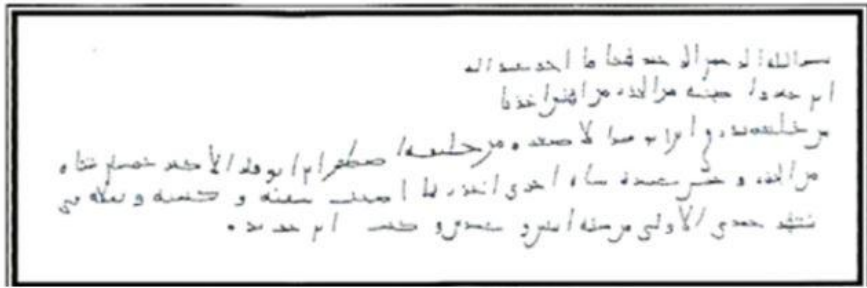 بسم الله الرحمن الرحيم هذا ما اخذ عبد اله
ابن جبر واصحبه من الجزر من اهنس اخذنا
من خليفة تدراق ابن ابو قير الاصغر ومن خليفة اصطفر ابن ابو قير الاكبر خمسين شاة
من الجزر وخمس عشرة شاة اخرى اجزرها اصحب سفنه وكتئبه وثقلاه في
شهر جمدى الاولى من سنة اثنين وعشرين وكتب ابن حديدو